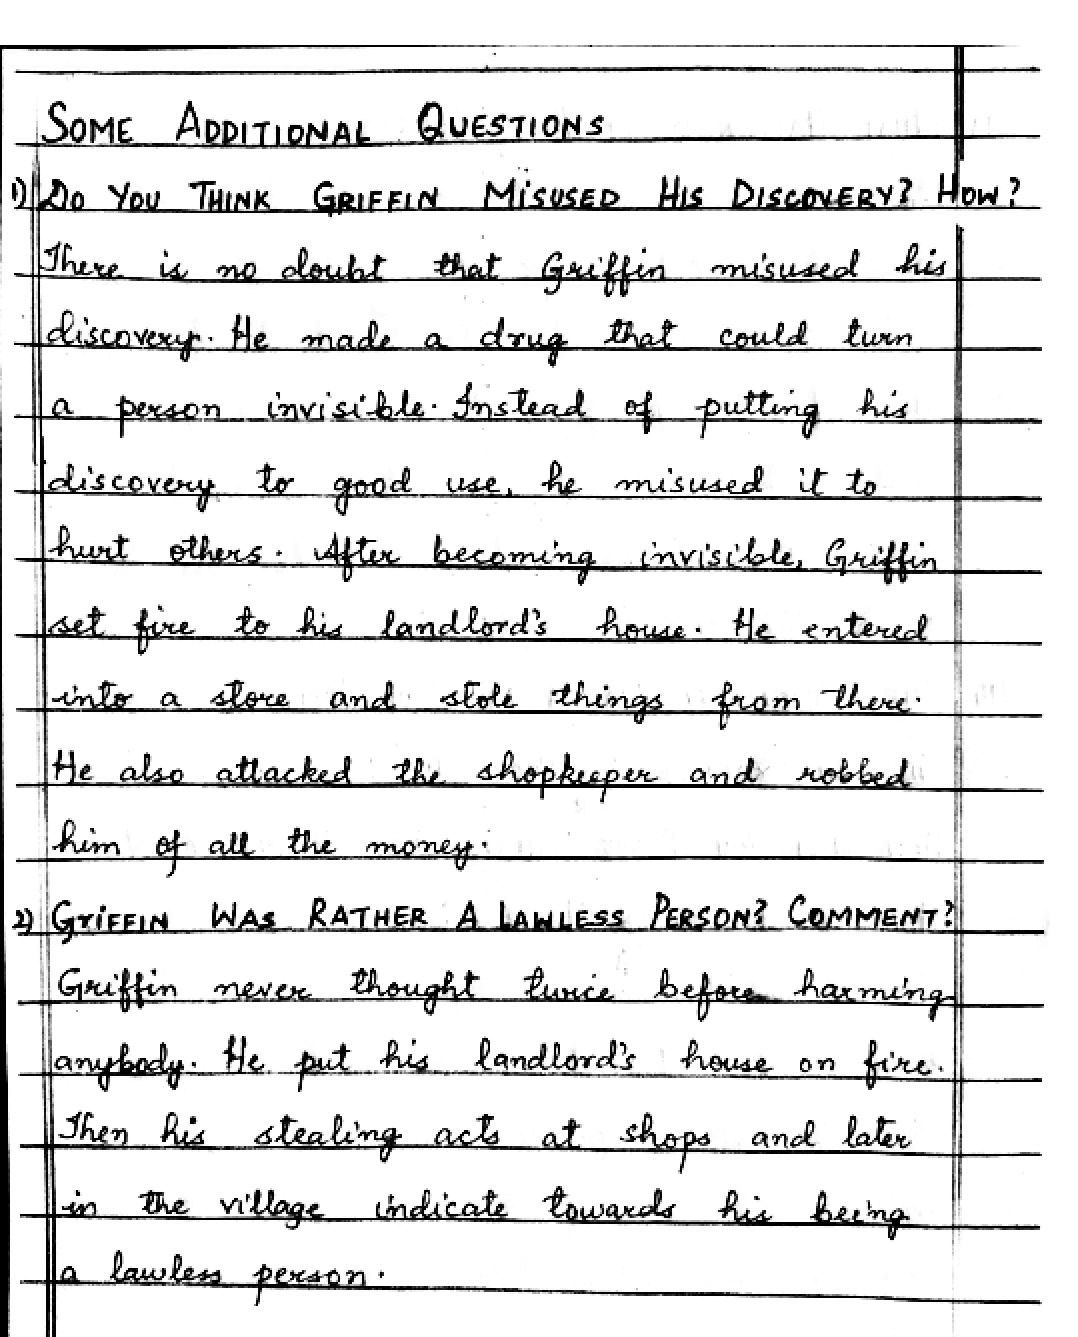 SOME ADDITIONAL QUESTIONS
1) DO YOU THINK GRIFFIN MISUSED HIS DISCOVERY? HOW?
There is no doubt that Griffin misused his
discovery. He made a drug that could turn
a person invisible. Instead of putting his
discovery to good use, he misused it to
hurt others. After becoming invisible, Griffin
set fire to his landlord's house. He entered
into a store and stole things from there.
He also attacked the shopkeeper and robbed
him of all the money.
2) GRIFFIN WAS RATHER A LAWLESS PERSON? COMMENT?
Griffin never thought twice before harming
anybody. He put his landlord's house on fire.
Then his stealing acts at shops and later
in the village indicate towards his being
a lawless person.